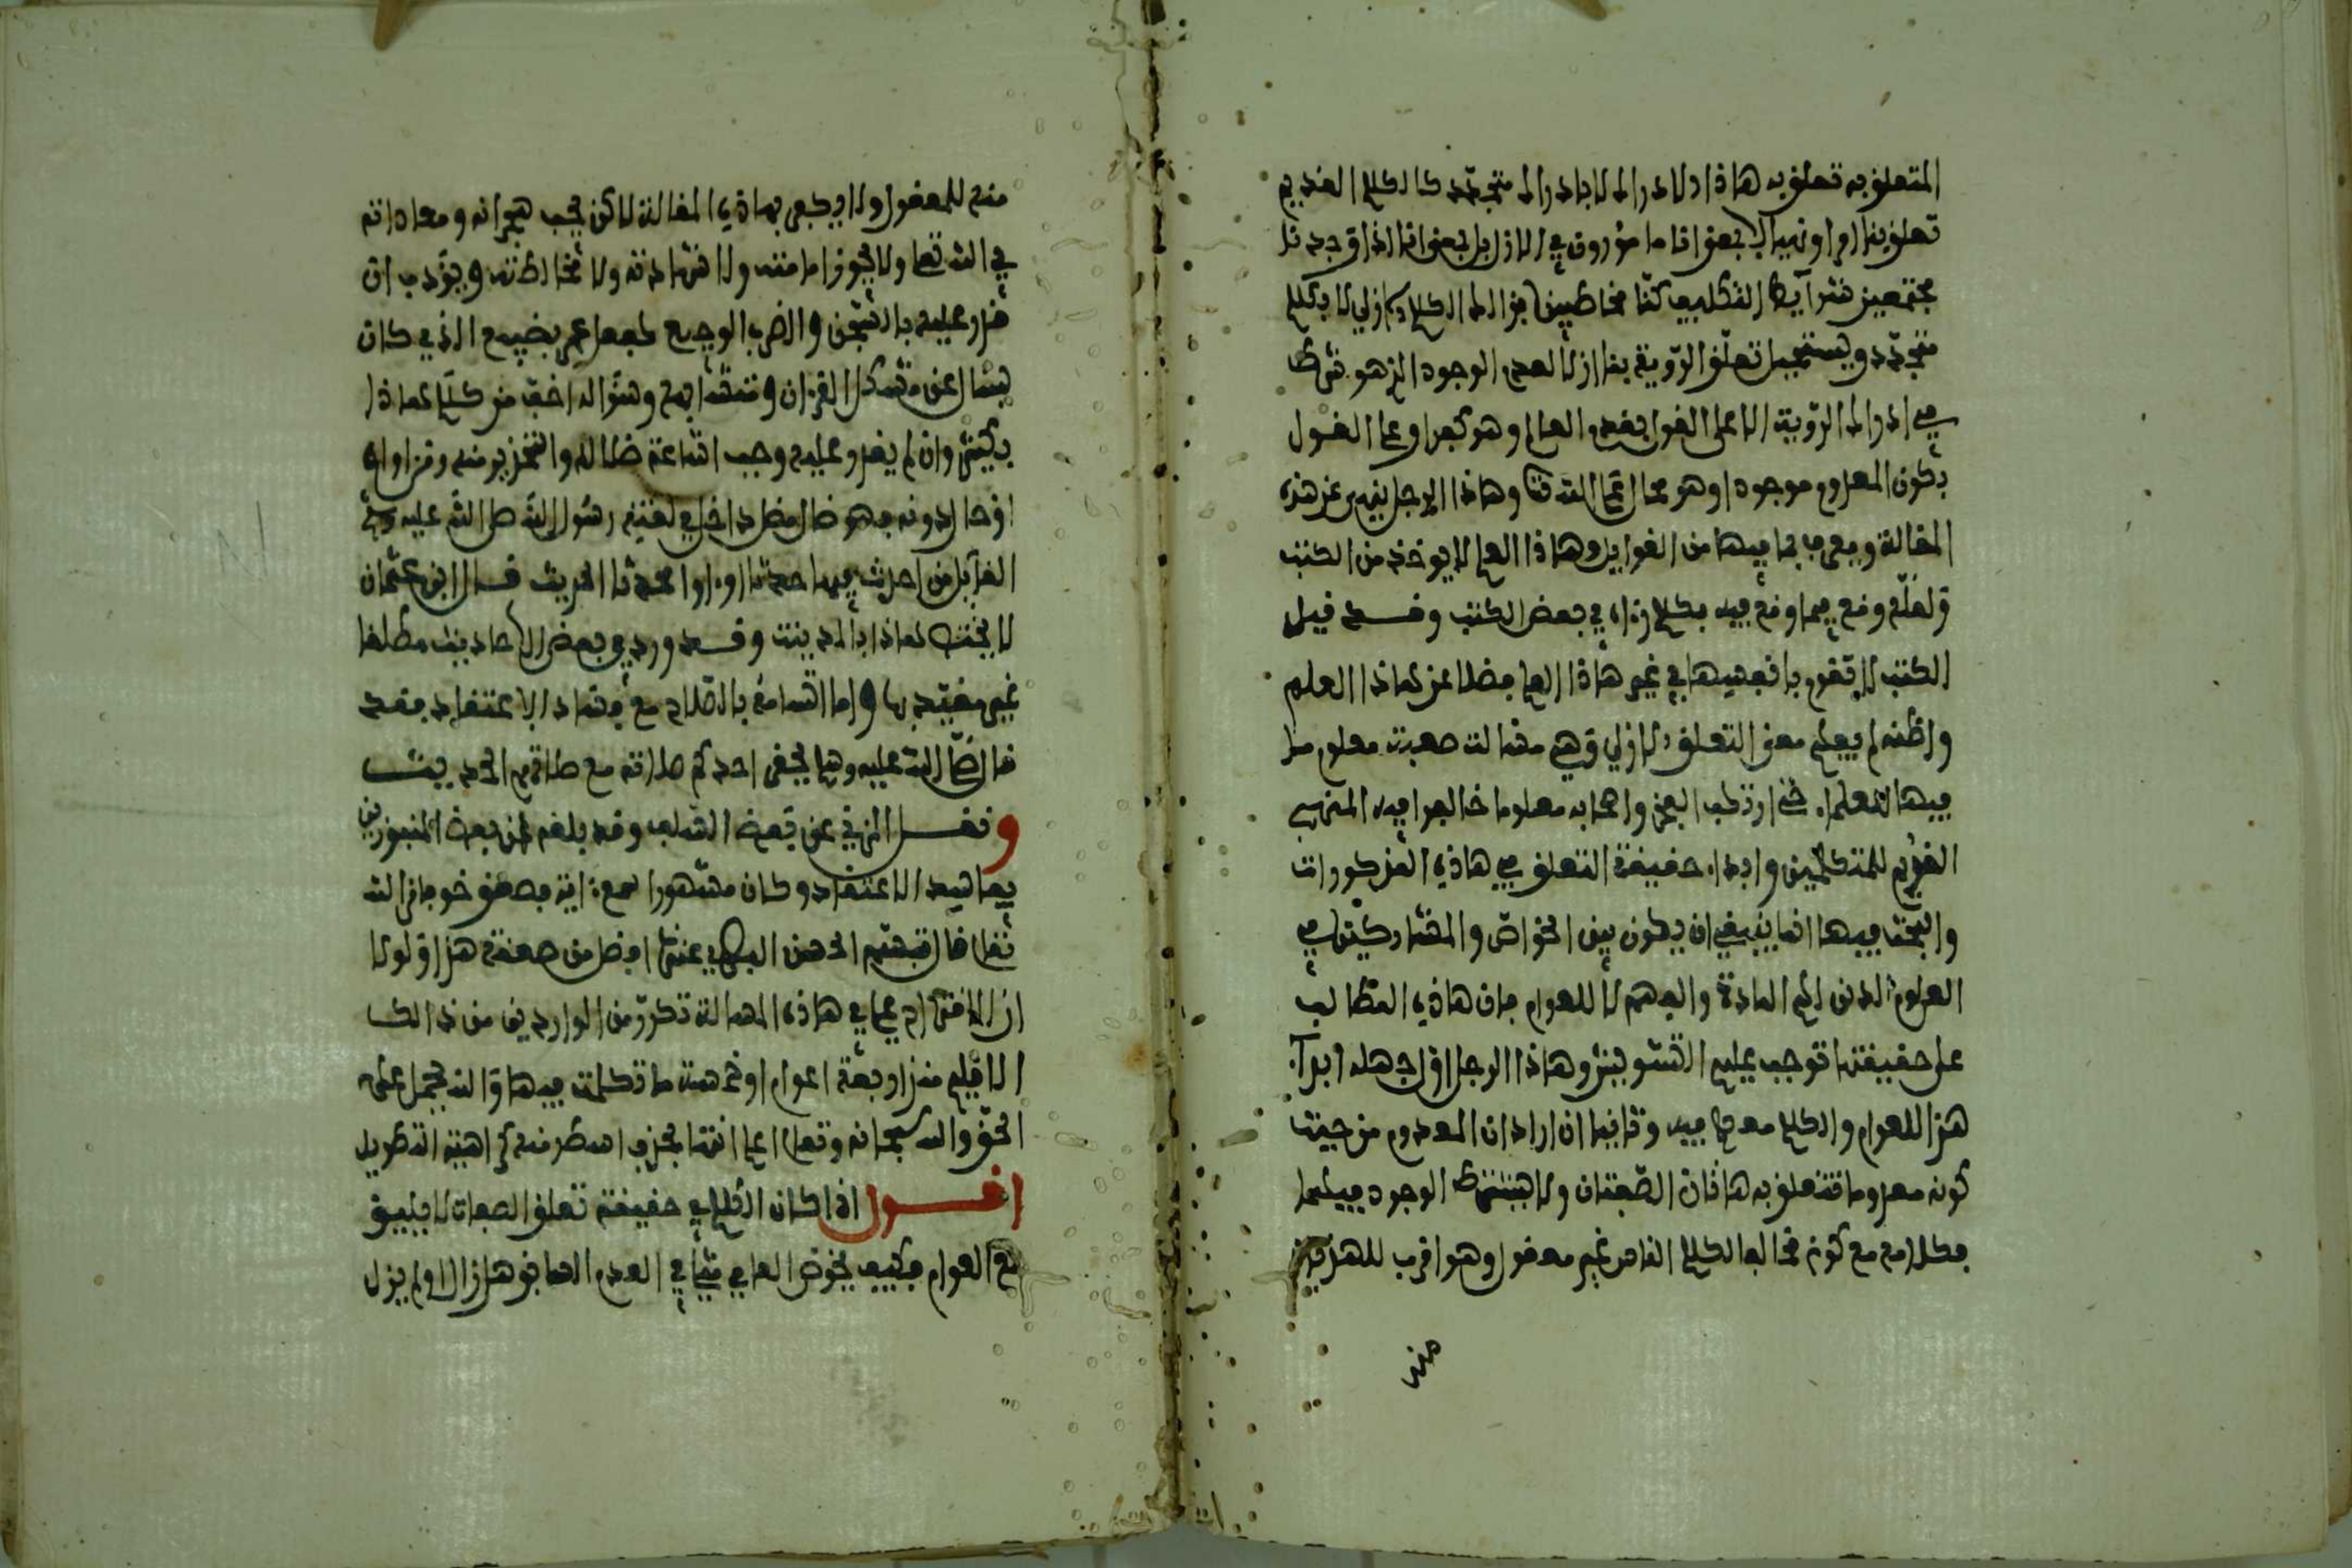 المتعلق به تعلق به هاذا الادراك لا بادراك متجدد كالكلام القديم
تعلق بنا امرا ونهيا لا بمعنى انا مامورون في الازل بل بمعنى انا اذا وجدنا
مجتمعين شرائط التكليف كنا مخاطبين بذالك الكلام الازلي لا بكلام
متجدد ويستحيل تعلق الرؤية بنا ازلا لعدم الوجود الذي هو شرط
في ادراك الرؤية الا على القول بقدم العالم وهو كفر او على القول
بكون المعدوم موجودا وهو محال على الله وهاذا الرجل ينهى عن هذه
المقالة ويعرف بما فيها من الغوايل وهاذا العلم لا يوخذ من الكتب
ولعله وقع فيما وقع فيه بكلام راه في بعض الكتب وقد قيل
الكتب لا تقوم بانفسها في غير هاذا العلم فضلا عن هاذا العلم
واظنه لم يعلم معنى التعلق الازلي وهي مسالة صعبة معلوم ما
فيها للعلماء حتى ارتكب الفخر واصحابه معلوما خالفوا فيه المذهب
القويم للمتكلمين وابداء حقيقة التعلق في هاذه المذكورات
والبحث فيها انما ينبغي ان يكون بين الخواص والمشاركين في
العلوم الذين لهم المادة والفهم لا للعوام فان هاذه المطالب
على حقيقتها توجب عليهم التشويش وهاذا الرجل اول جهله ابدا
هذا للعوام والكلام معهم فيه وثانيا ان اراد ان المعدوم من حيث
كونه معدوما تتعلق به هاتان الصفتان ولا يشترط الوجود فيهما
فكلامه مع كونه مخالفا لكلام الناس غير معقول وهو اقرب للهذيان
منه
منه للمعقول ولا يكفر بهاذه المقالة لاكن يجب هجرانه ومعاداته
في الله تعالى ولا تجوز امامته ولا شهادته ولا مخالطته ويؤدب ان
قدر عليه بالسجن والضرب الوجيع كفعل عمر بصبيغ الذي كان
يسال عن مشكل القرءان ومتشابهه وسؤاله اخف من كلام هاذا
بكثير وان لم يقدر عليه وجب اشاعة ضلاله والتحذير منه ومن اواه
او حال دونه فهو ضال مضل داخل في لعنة رسول الله صلى الله عليه وسلم
القائل من احدث فيها حدثا او اوى محدثا الحديث قال ابن عثمان
لا يختص هاذا بالمدينة وقد ورد في بعض الاحاديث مطلقا
غير مقيد بها واما اتسامه بالصلاح مع فساد الاعتقاد فقد
قال صلى الله عليه وسلم يحقر احدكم صلاته مع صلاتهم الحديث
ونقل المزني عن بعض السلف وقد بلغه عن بعض المنبوزين
بفاسد الاعتقاد وكان مشهورا لعبادته فصعق خوفا من الله
تعالى فقال قبسة الحسن البصري عندنا افضل من صعقة هذا ولولا
ان الافتراح علي في هاذه المسالة تكرر من الواردين من ذالك
الاقليم منذ اربعة اعوام او خمسة ما تكلمت فيها والله يحمل على
الحق والله سبحانه وتعالى اعلم انتهى بحذف اسطر منه كراهية التطويل
اقول اذا كان الكلام في حقيقة تعلق الصفات لا يليق
مع العوام فكيف بخوض العامي في العدم السابق هل زال او لم يزل